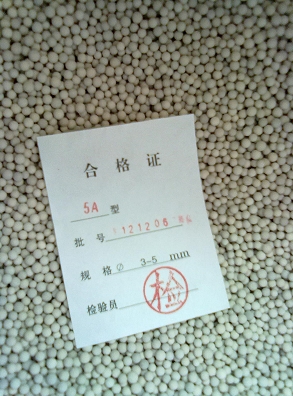 合格证
5A 型
批号 121206
规格 ∅ 3-5 mm
检验员 检